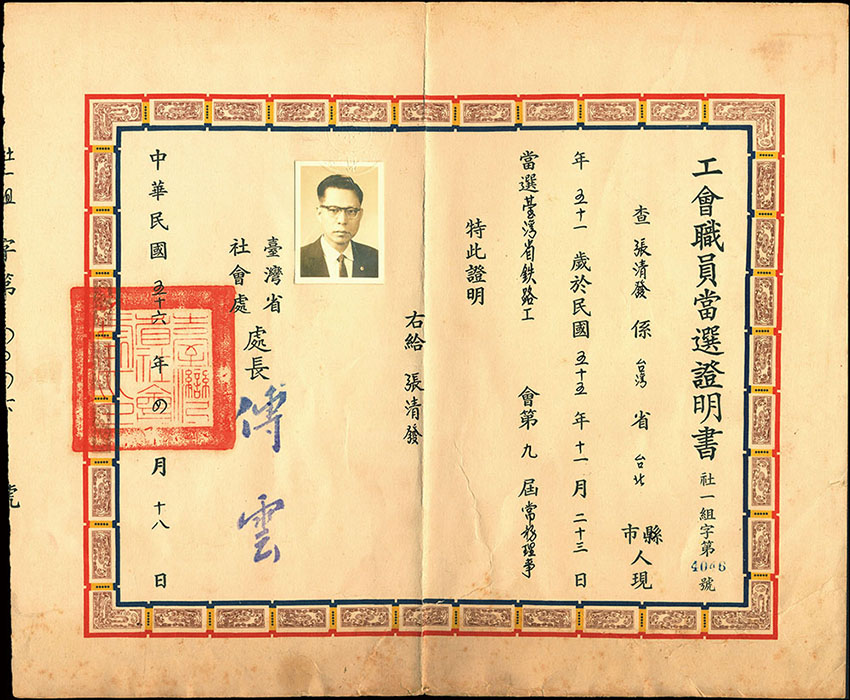 工會職員當選證明書
社一組字第4046號
查張清發係台灣省台北縣市人現
年五十一歲於民國五十五年十一月二十三日
當選臺灣省鉄路工會第九屆常務理事
特此證明
右給張清發
臺灣省
社會處
處長傅雲
中華民國五十六年四月十八日
社一組字第
號